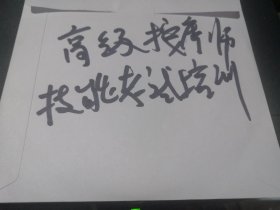 高级按摩师
技能考试培训